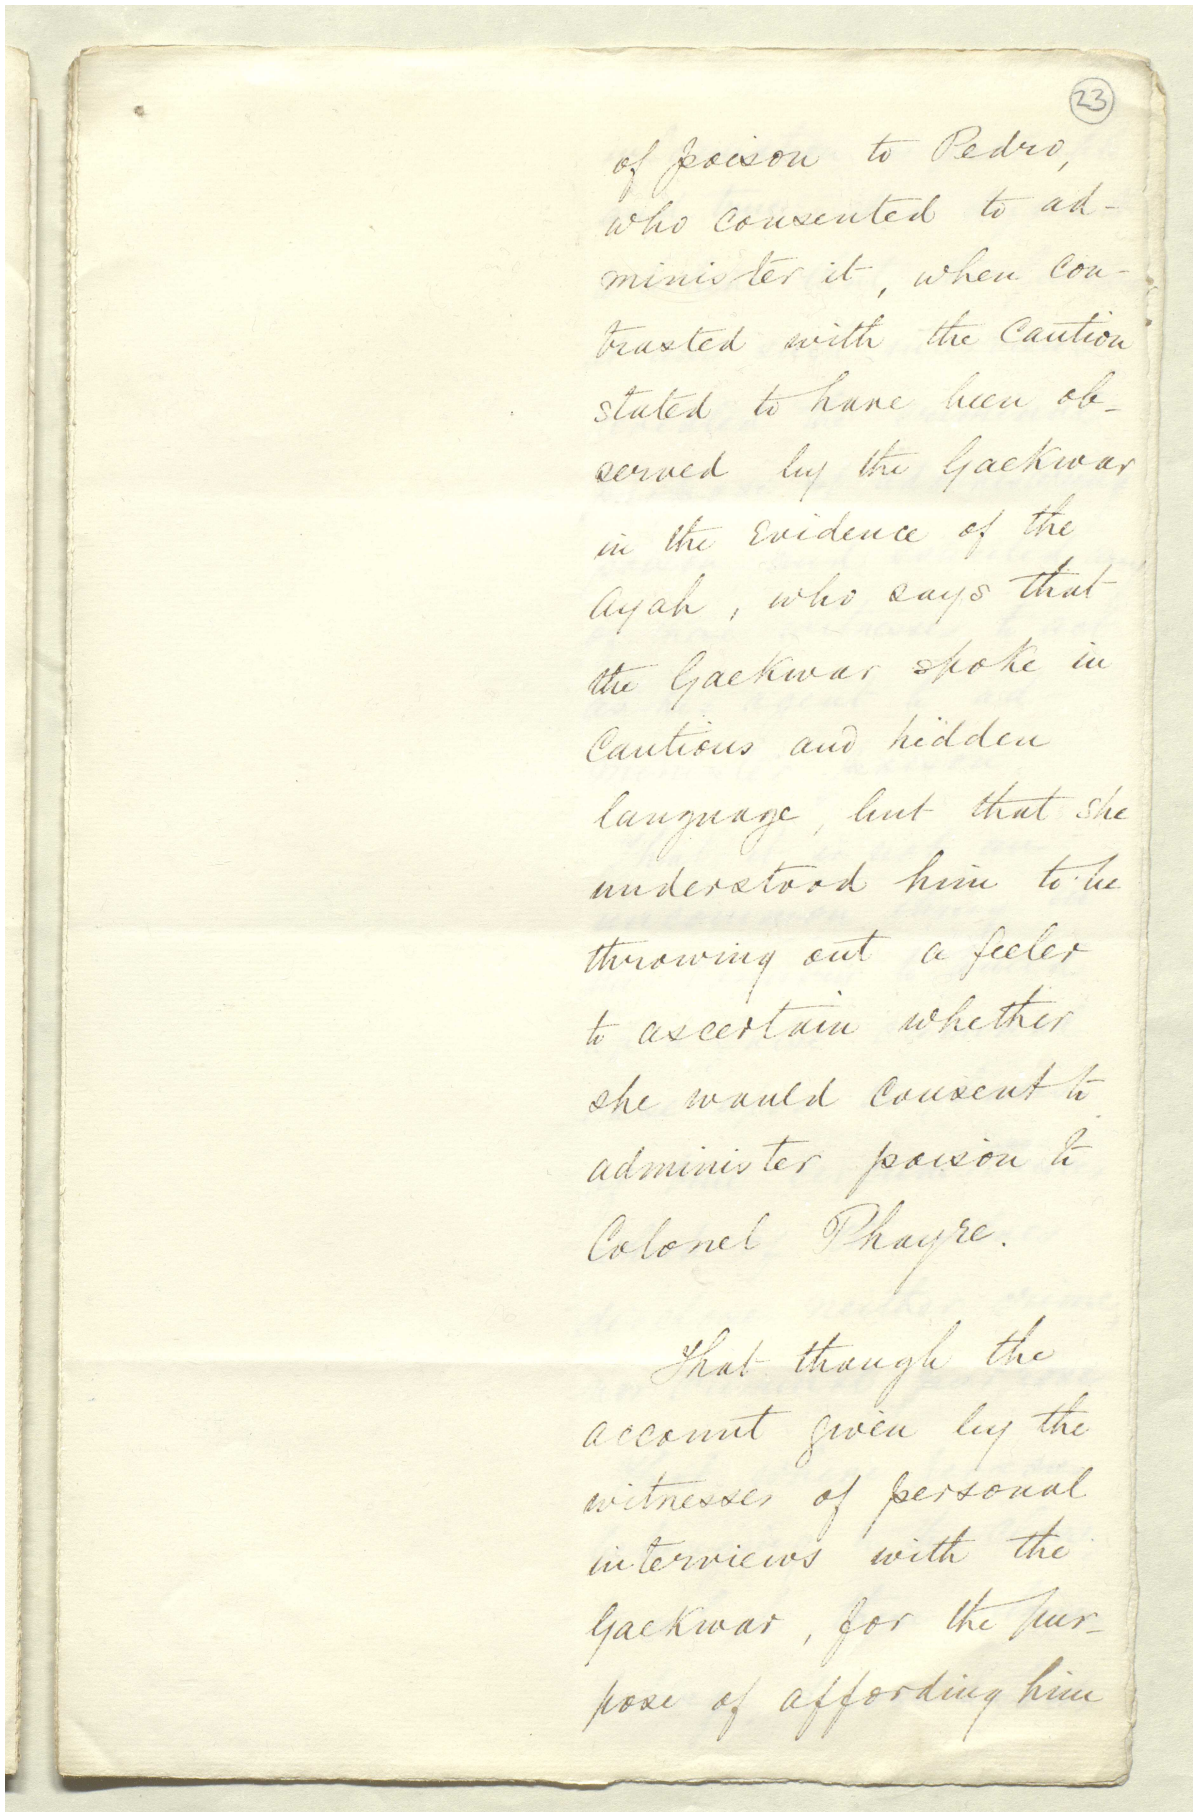 23
of poison to Pedro,
who consented to ad-
minister it, when con-
trasted with the Caution
stated to have been ob-
served by the Gaekwar
in the Evidence of the
Ayah, who says that
the Gaekwar spoke in
Cautious and hidden
language, but that she
understood him to be
throwing out a feeler
to ascertain whether
she would consent to
administer poison to
Colonel Phayre.
That though the
account given by the
witnesses of personal
interviews with the
Gaekwar, for the pur-
pose of affording him